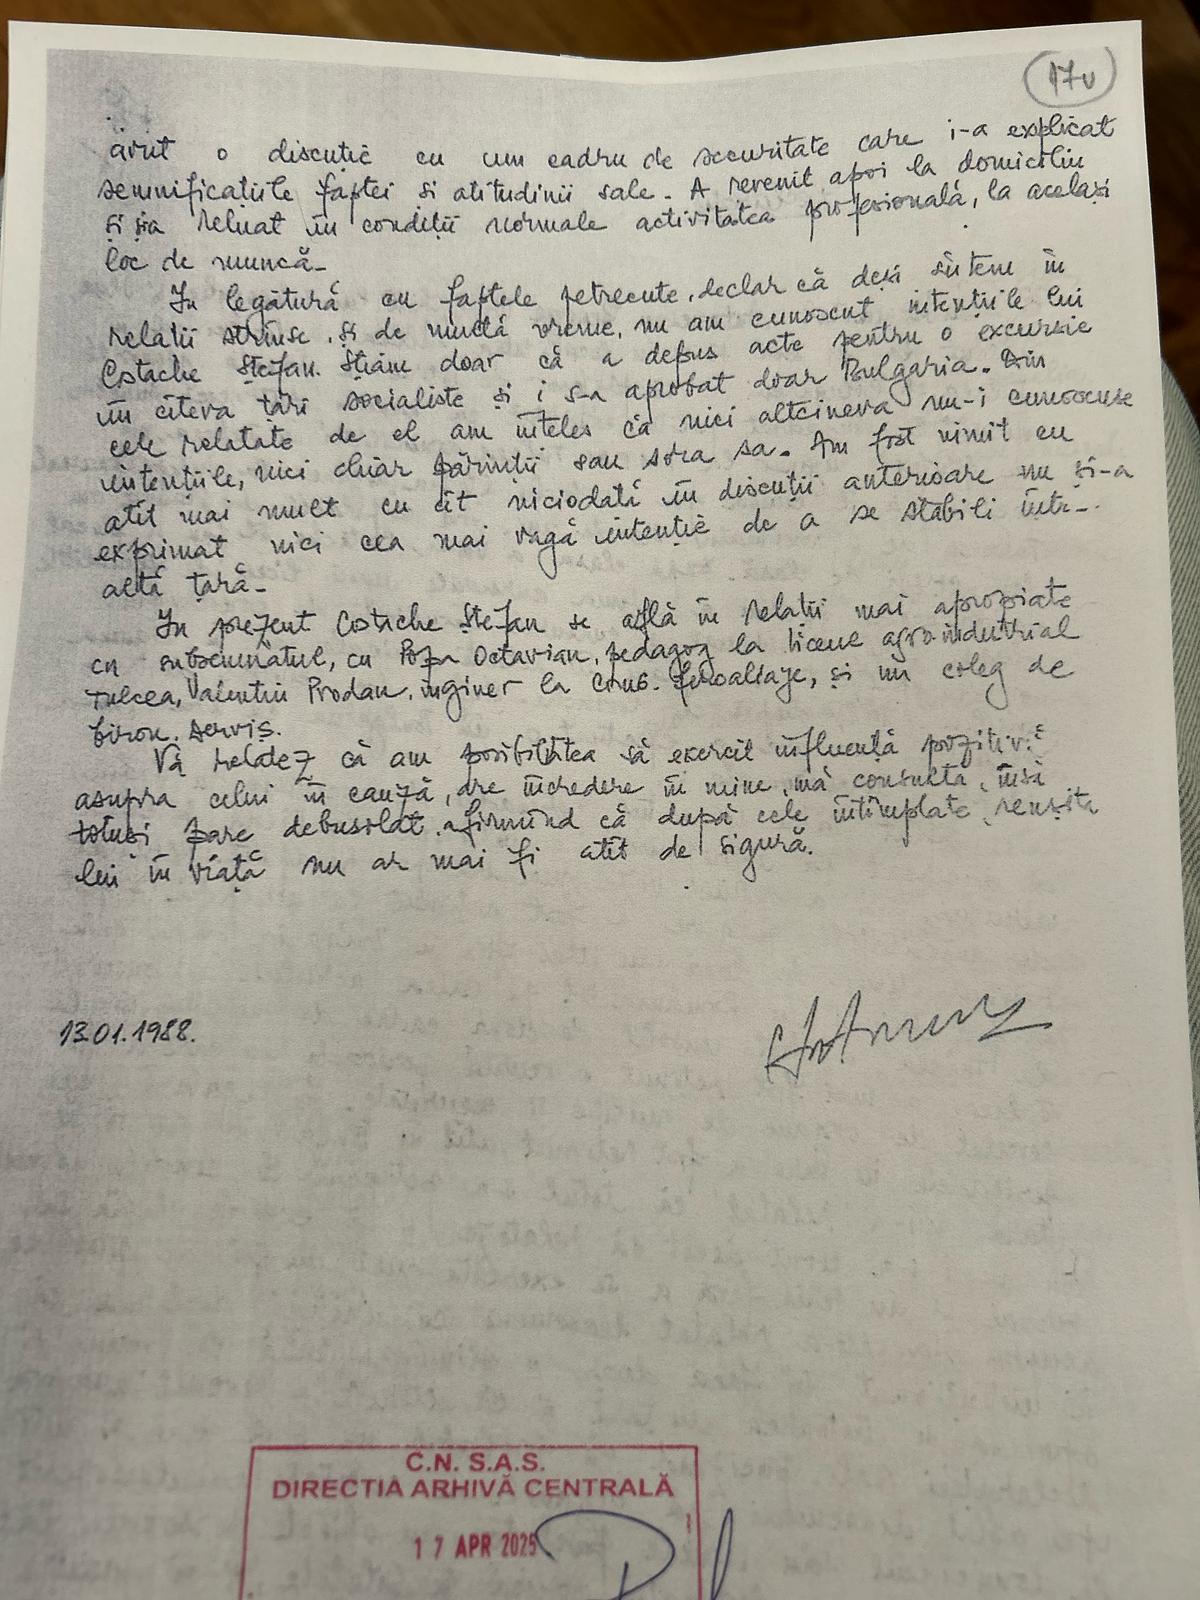 17v
avut o discuție cu un cadru de securitate care i-a explicat
semnificațiile faptei si atitudinii sale. A revenit apoi la domiciliu
și și-a reluat în condiții normale activitatea profesională, la același
loc de muncă.
In legătură cu faptele petrecute, declar că deși sîntem în
relatii strînse, și de multă vreme, nu am cunoscut intențiile lui
Costache Ștefan. Știam doar că a depus acte pentru o excursie
în cîteva țări socialiste și i s-a aprobat doar Bulgaria. Din
cele relatate de el am înțeles că nici altcineva nu-i cunoscuse
intențiile, nici chiar părinții sau sora sa. Am fost uimit cu
atît mai mult cu cît niciodată în discuții anterioare nu și-a
exprimat nici cea mai vagă intenție de a se stabili într-
altă țară.
In prezent Costache Ștefan se află în relații mai apropiate
cu subsemnatul, cu Popa Octavian, pedagog la liceul agroindustrial
Tulcea, Valentin Prodan, inginer la Comb. feroaliaje, și un coleg de
birou. serviș.
Vă relatez că am posibilitatea să exercit influență pozitivă
asupra celui în cauză, are încredere în mine, mă consultă, însă
totuși pare debusolat, afirmînd că după cele întîmplate, reușita
lui în viață nu ar mai fi atît de sigură.
13.01.1988.
C.N.S.A.S.
DIRECTIA ARHIVĂ CENTRALĂ
17 APR 2025